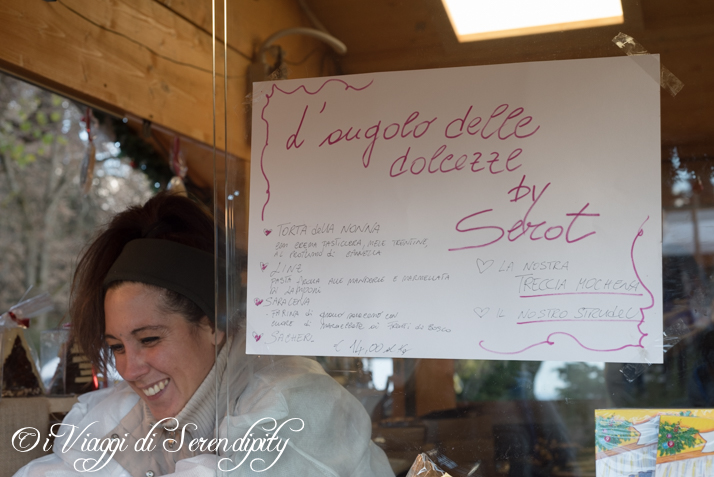 L'angolo delle
dolcezze
by
Serot
TORTA della NONNA
CON CREMA PASTICCERA, MELE TRENTINE,
AL PROFUMO di CANNELLA
LINZ
PASTA FROLLA ALLE MANDORLE E MARMELLATA
DI LAMPONI
SARACENA
FARINA DI grano saraceno con
di marmellata ai frutti di bosco
SACHER
€ 14,00 al kg
LA NOSTRA
TRECCIA MOCHENA
IL NOSTRO STRUDEL
© i Viaggi di Serendipity